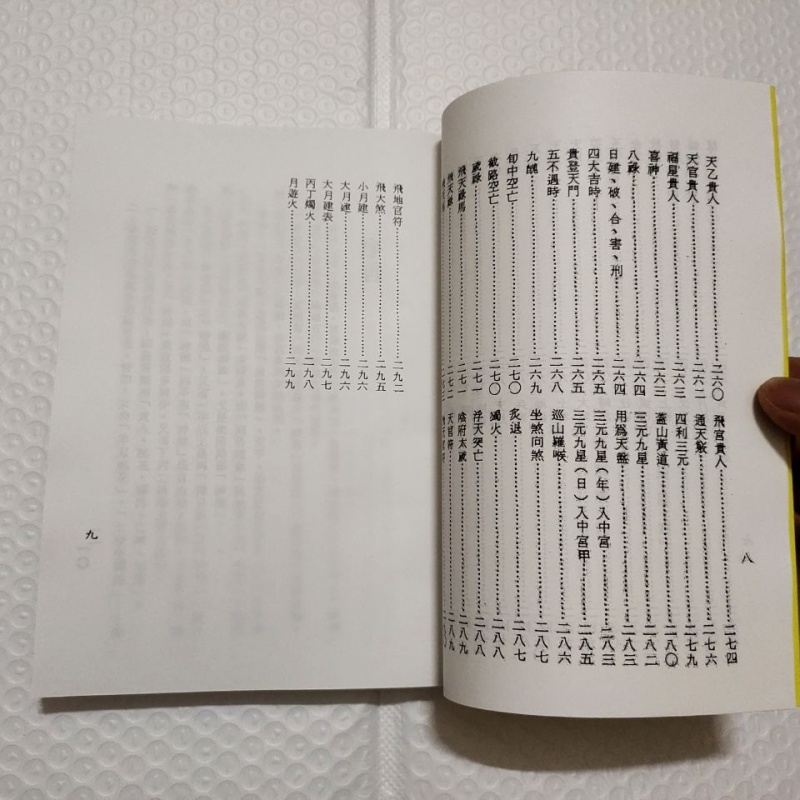 天乙貴人……二六〇
天官貴人……二六二
福星貴人……二六三
喜神……二六三
八祿……二六四
日建、破、合、害、刑……二六四
四大吉時……二六五
貴登天門……二六五
五不遇時……二六八
九醜……二六九
旬中空亡……二七〇
截路空亡……二七〇
歲祿……二七一
飛天祿馬……二七一
飛宮貴人……二七四
通天竅……二七六
四利三元……二七九
蓋山黃道……二八〇
三元九星……二八二
用爲天盤……二八三
三元九星(年)入中宮……二八三
三元九星(日)入中宮甲……二八五
巡山羅睺……二八六
坐煞向煞……二八七
炙退……二八七
獨火……二八八
浮天空亡……二八八
陰府太歲……二八九
天官符……二八九
八
飛地官符……二九二
飛大煞……二九五
小月建……二九六
大月建……二九六
大月建表……二九七
丙丁獨火……二九八
月遊火……二九九
九